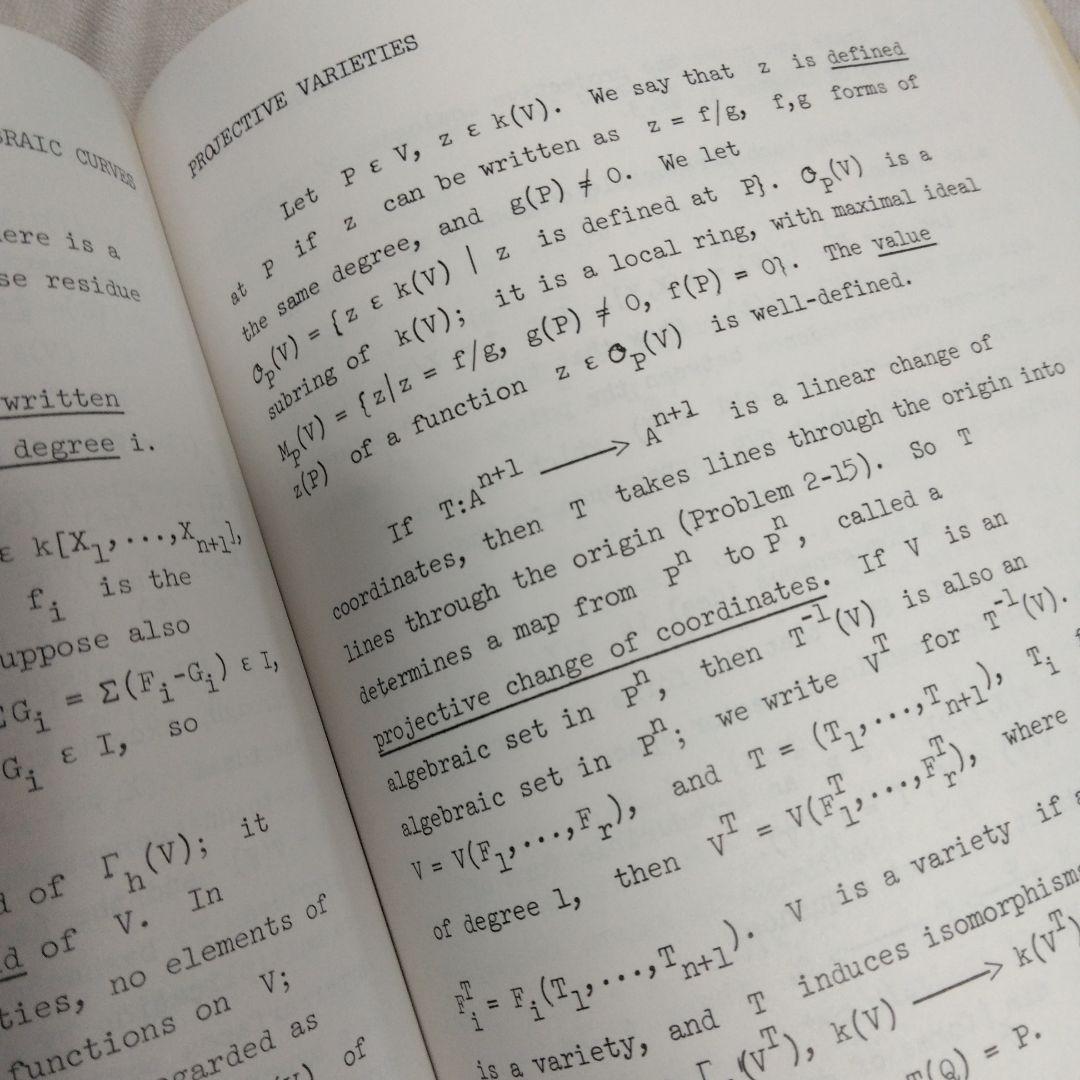 BRAIC CURVES
ere is a
se residue
written
degree i.
ε k[X₁,...,Xₙ₊₁],
fᵢ is the
uppose also
ΣGᵢ = Σ(Fᵢ-Gᵢ) ε I,
Gᵢ ε I, so
d of Γₕ(V); it
d of V. In
ties, no elements of
functions on V;
garded as
of
PROJECTIVE VARIETIES
Let P ε V, z ε k(V). We say that z is defined
at P if z can be written as z = f/g, f,g forms of
the same degree, and g(P) ≠ 0. We let
𝒪ₚ(V) = {z ε k(V) | z is defined at P}. 𝒪ₚ(V) is a
subring of k(V); it is a local ring, with maximal ideal
Mₚ(V) = {z|z = f/g, g(P) ≠ 0, f(P) = 0}. The value
z(P) of a function z ε 𝒪ₚ(V) is well-defined.
If T:Aⁿ⁺¹ ⟶ Aⁿ⁺¹ is a linear change of
coordinates, then T takes lines through the origin into
lines through the origin (Problem 2-15). So T
determines a map from Pⁿ to Pⁿ, called a
projective change of coordinates. If V is an
algebraic set in Pⁿ, then T⁻¹(V) is also an
algebraic set in Pⁿ; we write Vᵀ for T⁻¹(V).
V = V(F₁,...,Fᵣ), and T = (T₁,...,Tₙ₊₁), Tᵢ
of degree 1, then Vᵀ = V(F₁ᵀ,...,Fᵣᵀ), where
Fᵢᵀ = Fᵢ(T₁,...,Tₙ₊₁). V is a variety if
is a variety, and T induces isomorphisms
(Vᵀ), k(V) ⟶ k(Vᵀ)
T(Q) = P.